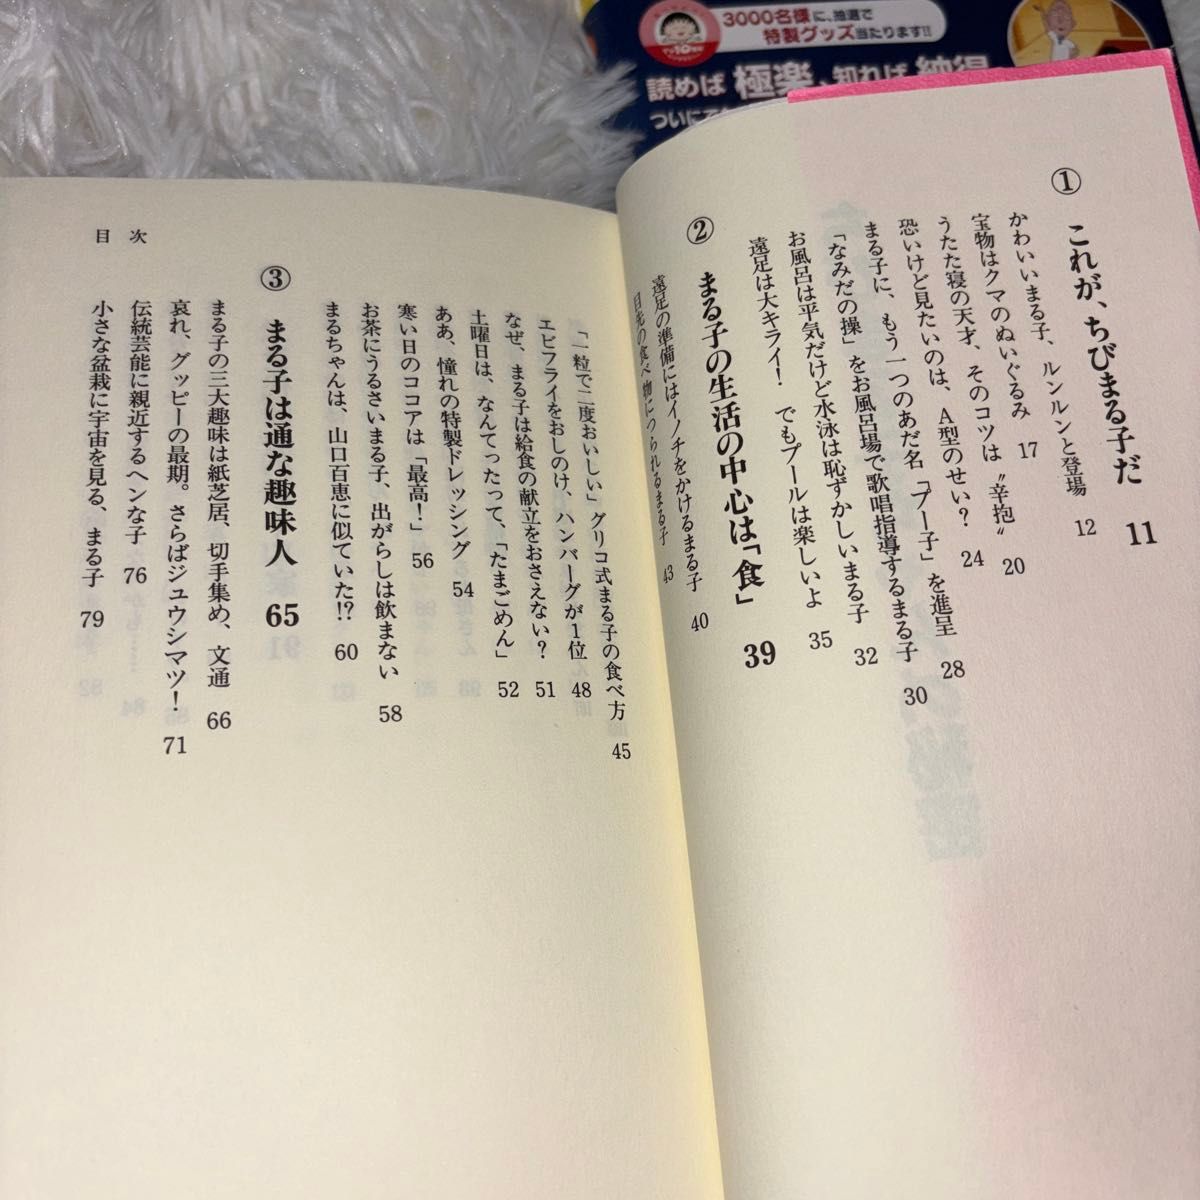 3000名様に、抽選で
特製グッズ当たります!!
読めば 極楽、知れば 納得
① これが、ちびまる子だ 11
かわいいまる子、ルンルンと登場 12
宝物はクマのぬいぐるみ 17
うたた寝の天才、そのコツは〝辛抱〟 20
恐いけど見たいのは、A型のせい? 24
まる子に、もう一つのあだ名「プー子」を進呈 28
「なみだの操」をお風呂場で歌唱指導するまる子 30
お風呂は平気だけど水泳は恥ずかしいまる子 32
遠足は大キライ! でもプールは楽しいよ 35
② まる子の生活の中心は「食」 39
遠足の準備にはイノチをかけるまる子 40
目先の食べ物につられるまる子 43
「一粒で二度おいしい」グリコ式まる子の食べ方 45
エビフライをおしのけ、ハンバーグが1位 48
なぜ、まる子は給食の献立をおさえない? 51
土曜日は、なんてったって、「たまごめん」 52
ああ、憧れの特製ドレッシング 54
寒い日のココアは「最高!」 56
お茶にうるさいまる子、出がらしは飲まない 58
まるちゃんは、山口百恵に似ていた!? 60
③ まる子は通な趣味人 65
まる子の三大趣味は紙芝居、切手集め、文通 66
哀れ、グッピーの最期。さらばジュウシマツ! 71
伝統芸能に親近するヘンな子 76
小さな盆栽に宇宙を見る、まる子 79
目次